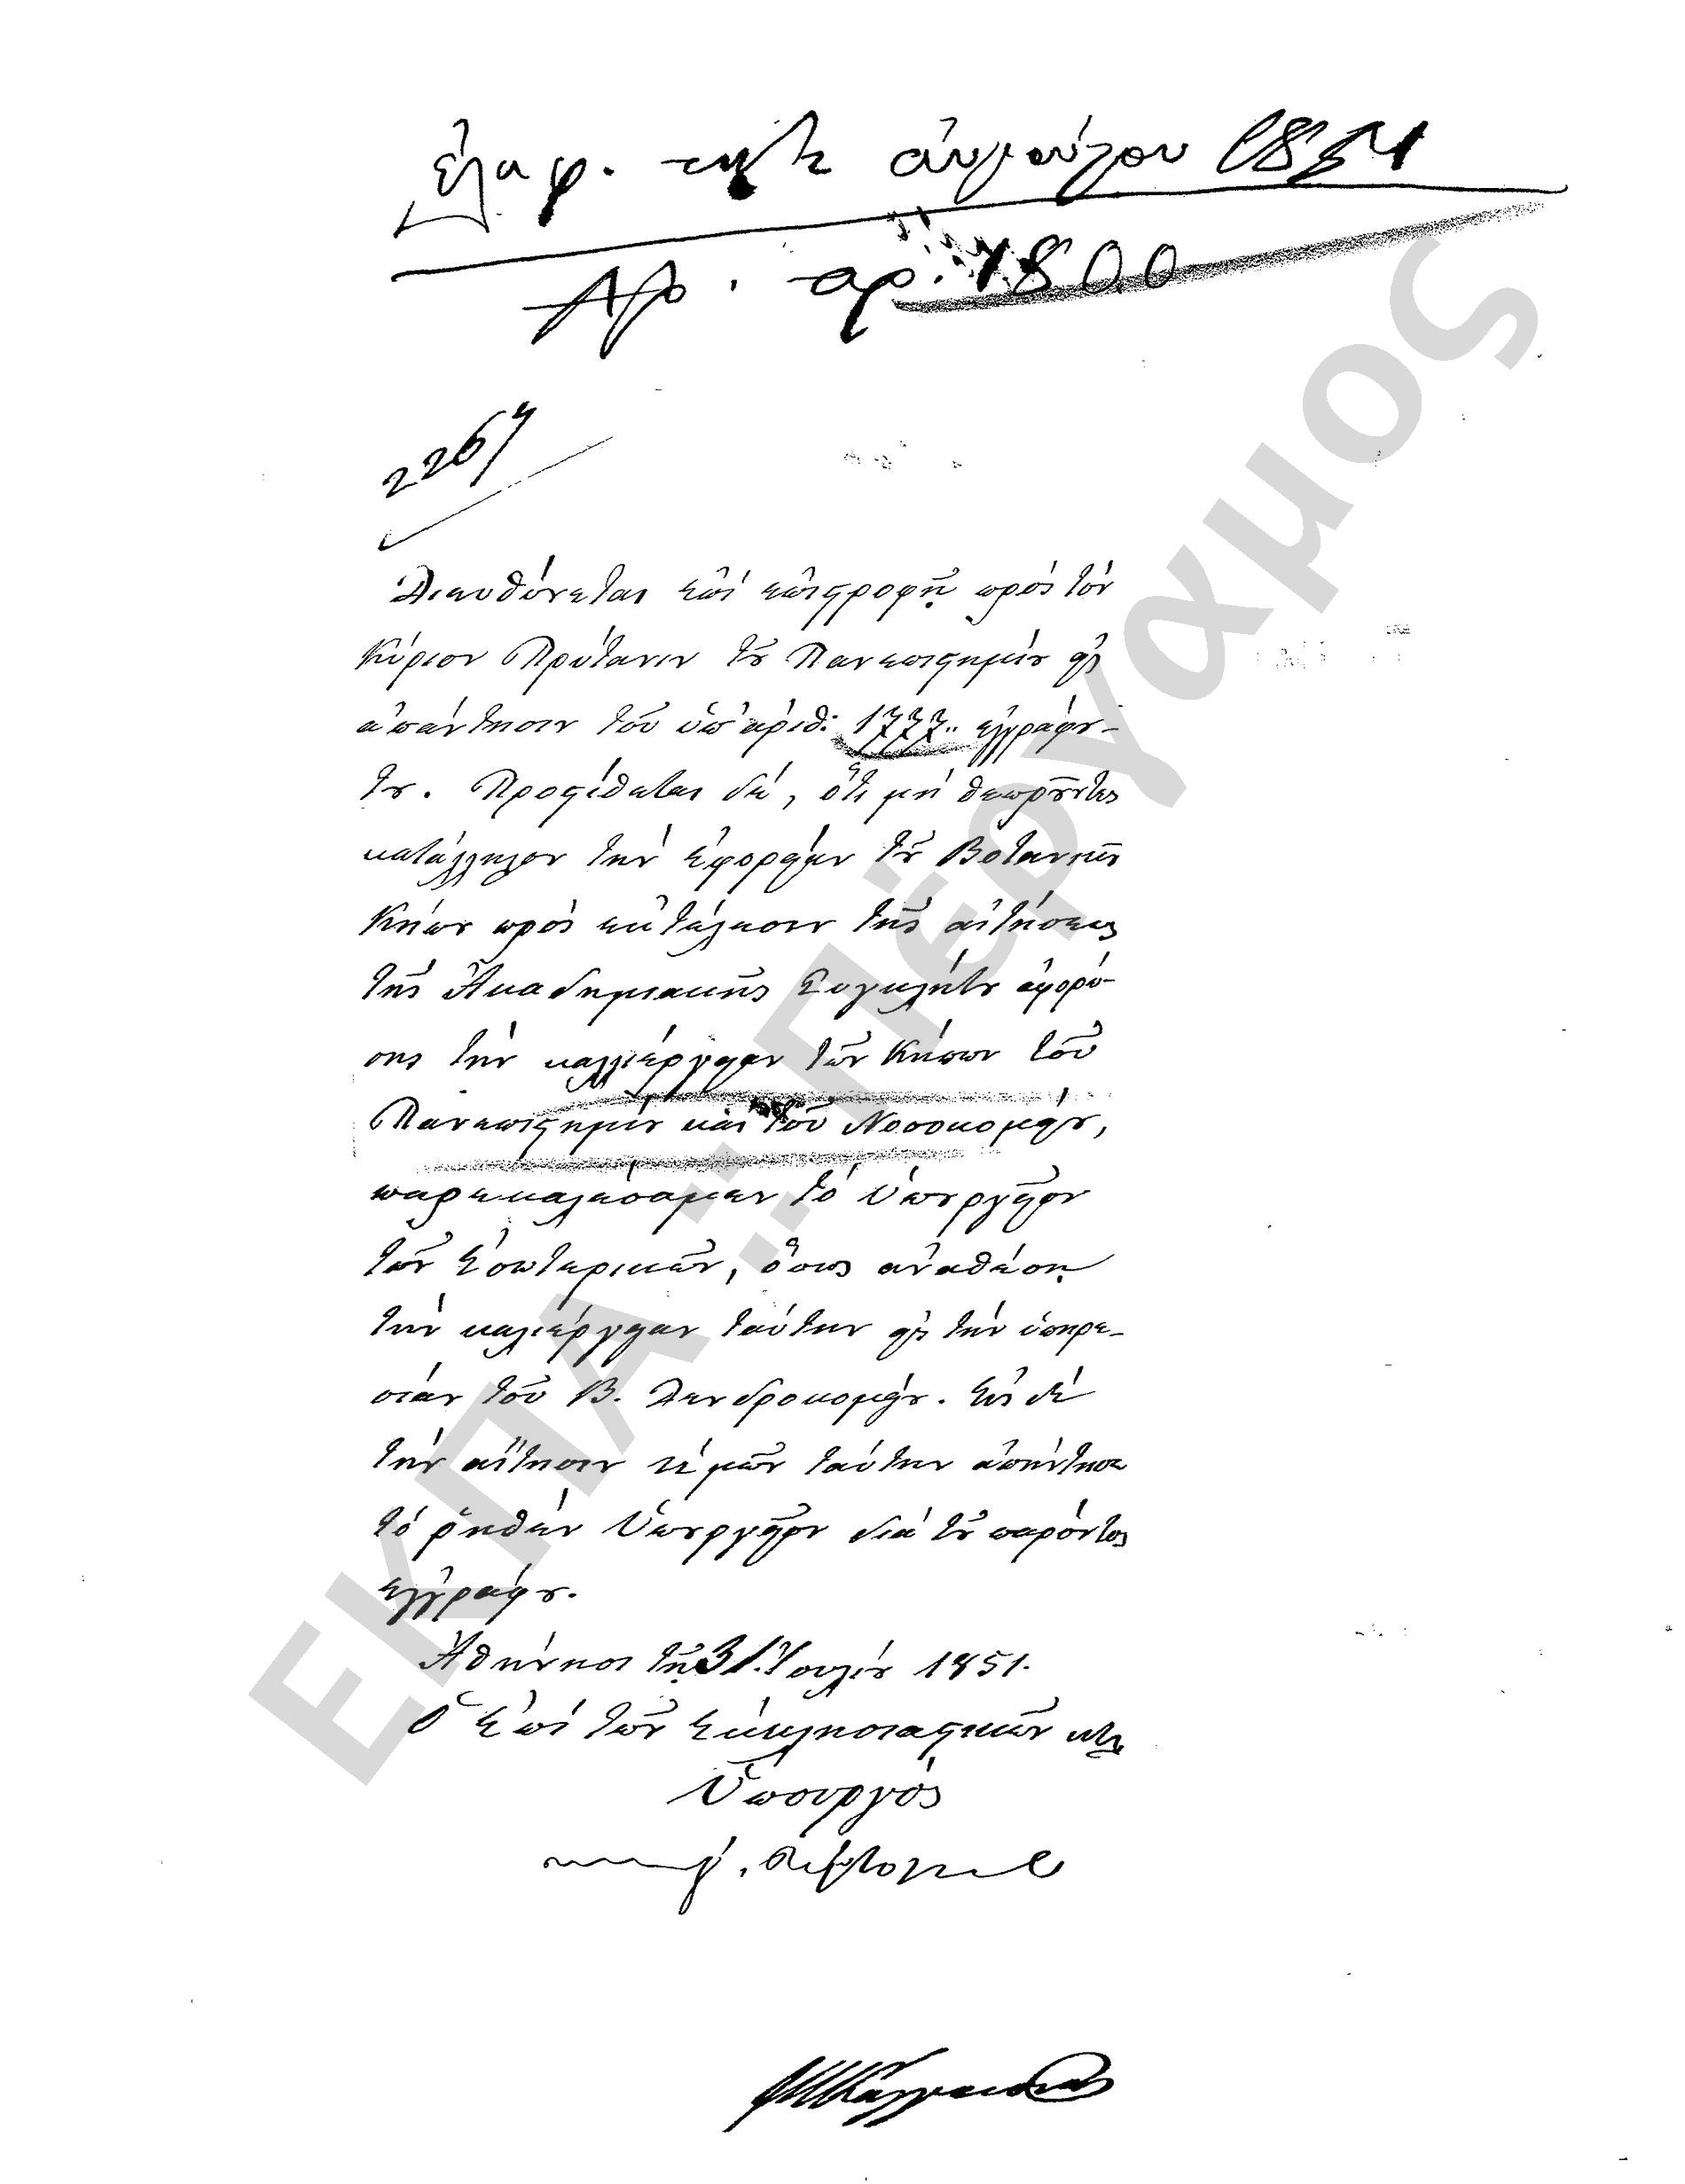 ἐλήφ. τῇ αὐγούστου 1851
Πρ. αρ. 1800
2267
Διευθύνεται ἐπὶ ἐπιστροφῇ πρὸς τὸν
Κύριον Πρύτανιν τοῦ Πανεπιστημίου εἰς
ἀπάντησιν τοῦ ὑπ' ἀριθ: 1777.. ἐγγράφου
του. Προστίθεται δὲ, ὅτι μὴ θεωροῦντες
κατάλληλον τὴν ἐφορείαν τοῦ Βοτανικοῦ
Κήπου πρὸς ἐκτέλεσιν τῆς αἰτήσεως
τῆς Ἀκαδημιακῆς Συγκλήτου ἀφορώ-
σης τὴν καλλιέργειαν τῶν Κήπων τοῦ
Πανεπιστημίου καὶ τοῦ Νοσοκομείου,
παρεκαλέσαμεν τὸ Ὑπουργεῖον
τῶν Ἐσωτερικῶν, ὅπως ἀναθέσῃ
τὴν καλιέργειαν ταύτην εἰς τὴν ὑπηρε-
σίαν τοῦ Β. Δενδροκομείου. Εἰς δὲ
τὴν αἴτησιν ἡμῶν ταύτην ἀπήντησε
τὸ ῥηθὲν Ὑπουργεῖον διὰ τοῦ παρόντος
ἐγγράφου.
Ἀθήνησι τῇ 31. Ἰουλίου 1851.
Ὁ Ἐπὶ τῶν Ἐκκλησιαστικῶν κτλ
Ὑπουργὸς
ΕΚΠΑ :: Πέργαμος